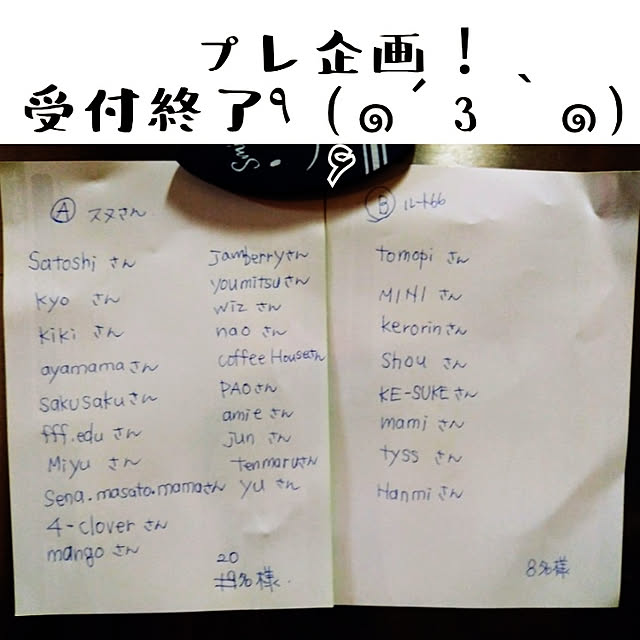 プレ企画！
受付終了٩(๑´3｀๑)
۶
Ⓐ スヌさん
Satoshi さん
Kyo さん
kiki さん
ayamamaさん
sakusakuさん
fff.edu さん
Miyu さん
Sena.masato.mamaさん
4-clover さん
mango さん
Jamberryさん
youmitsuさん
wiz さん
nao さん
coffee Houseさん
PAOさん
amie さん
Jun さん
tenmaruさん
yu さん
20
19名様.
Ⓑ ルート66
tomopi さん
MINI さん
kerorinさん
Shou さん
KE-SUKE さん
mami さん
tyss さん
Hanmi さん
8名様